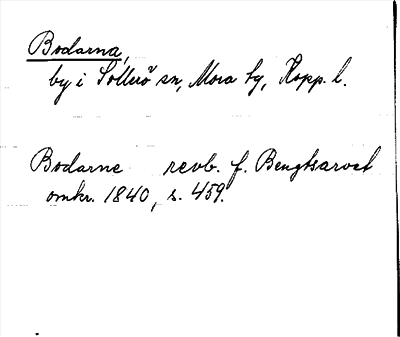 Bodarna,
by i Sollerö sn, Mora tg, Kopp. l.
Bodarne revb. f. Bengtsarvet
omkr. 1840, s. 459.